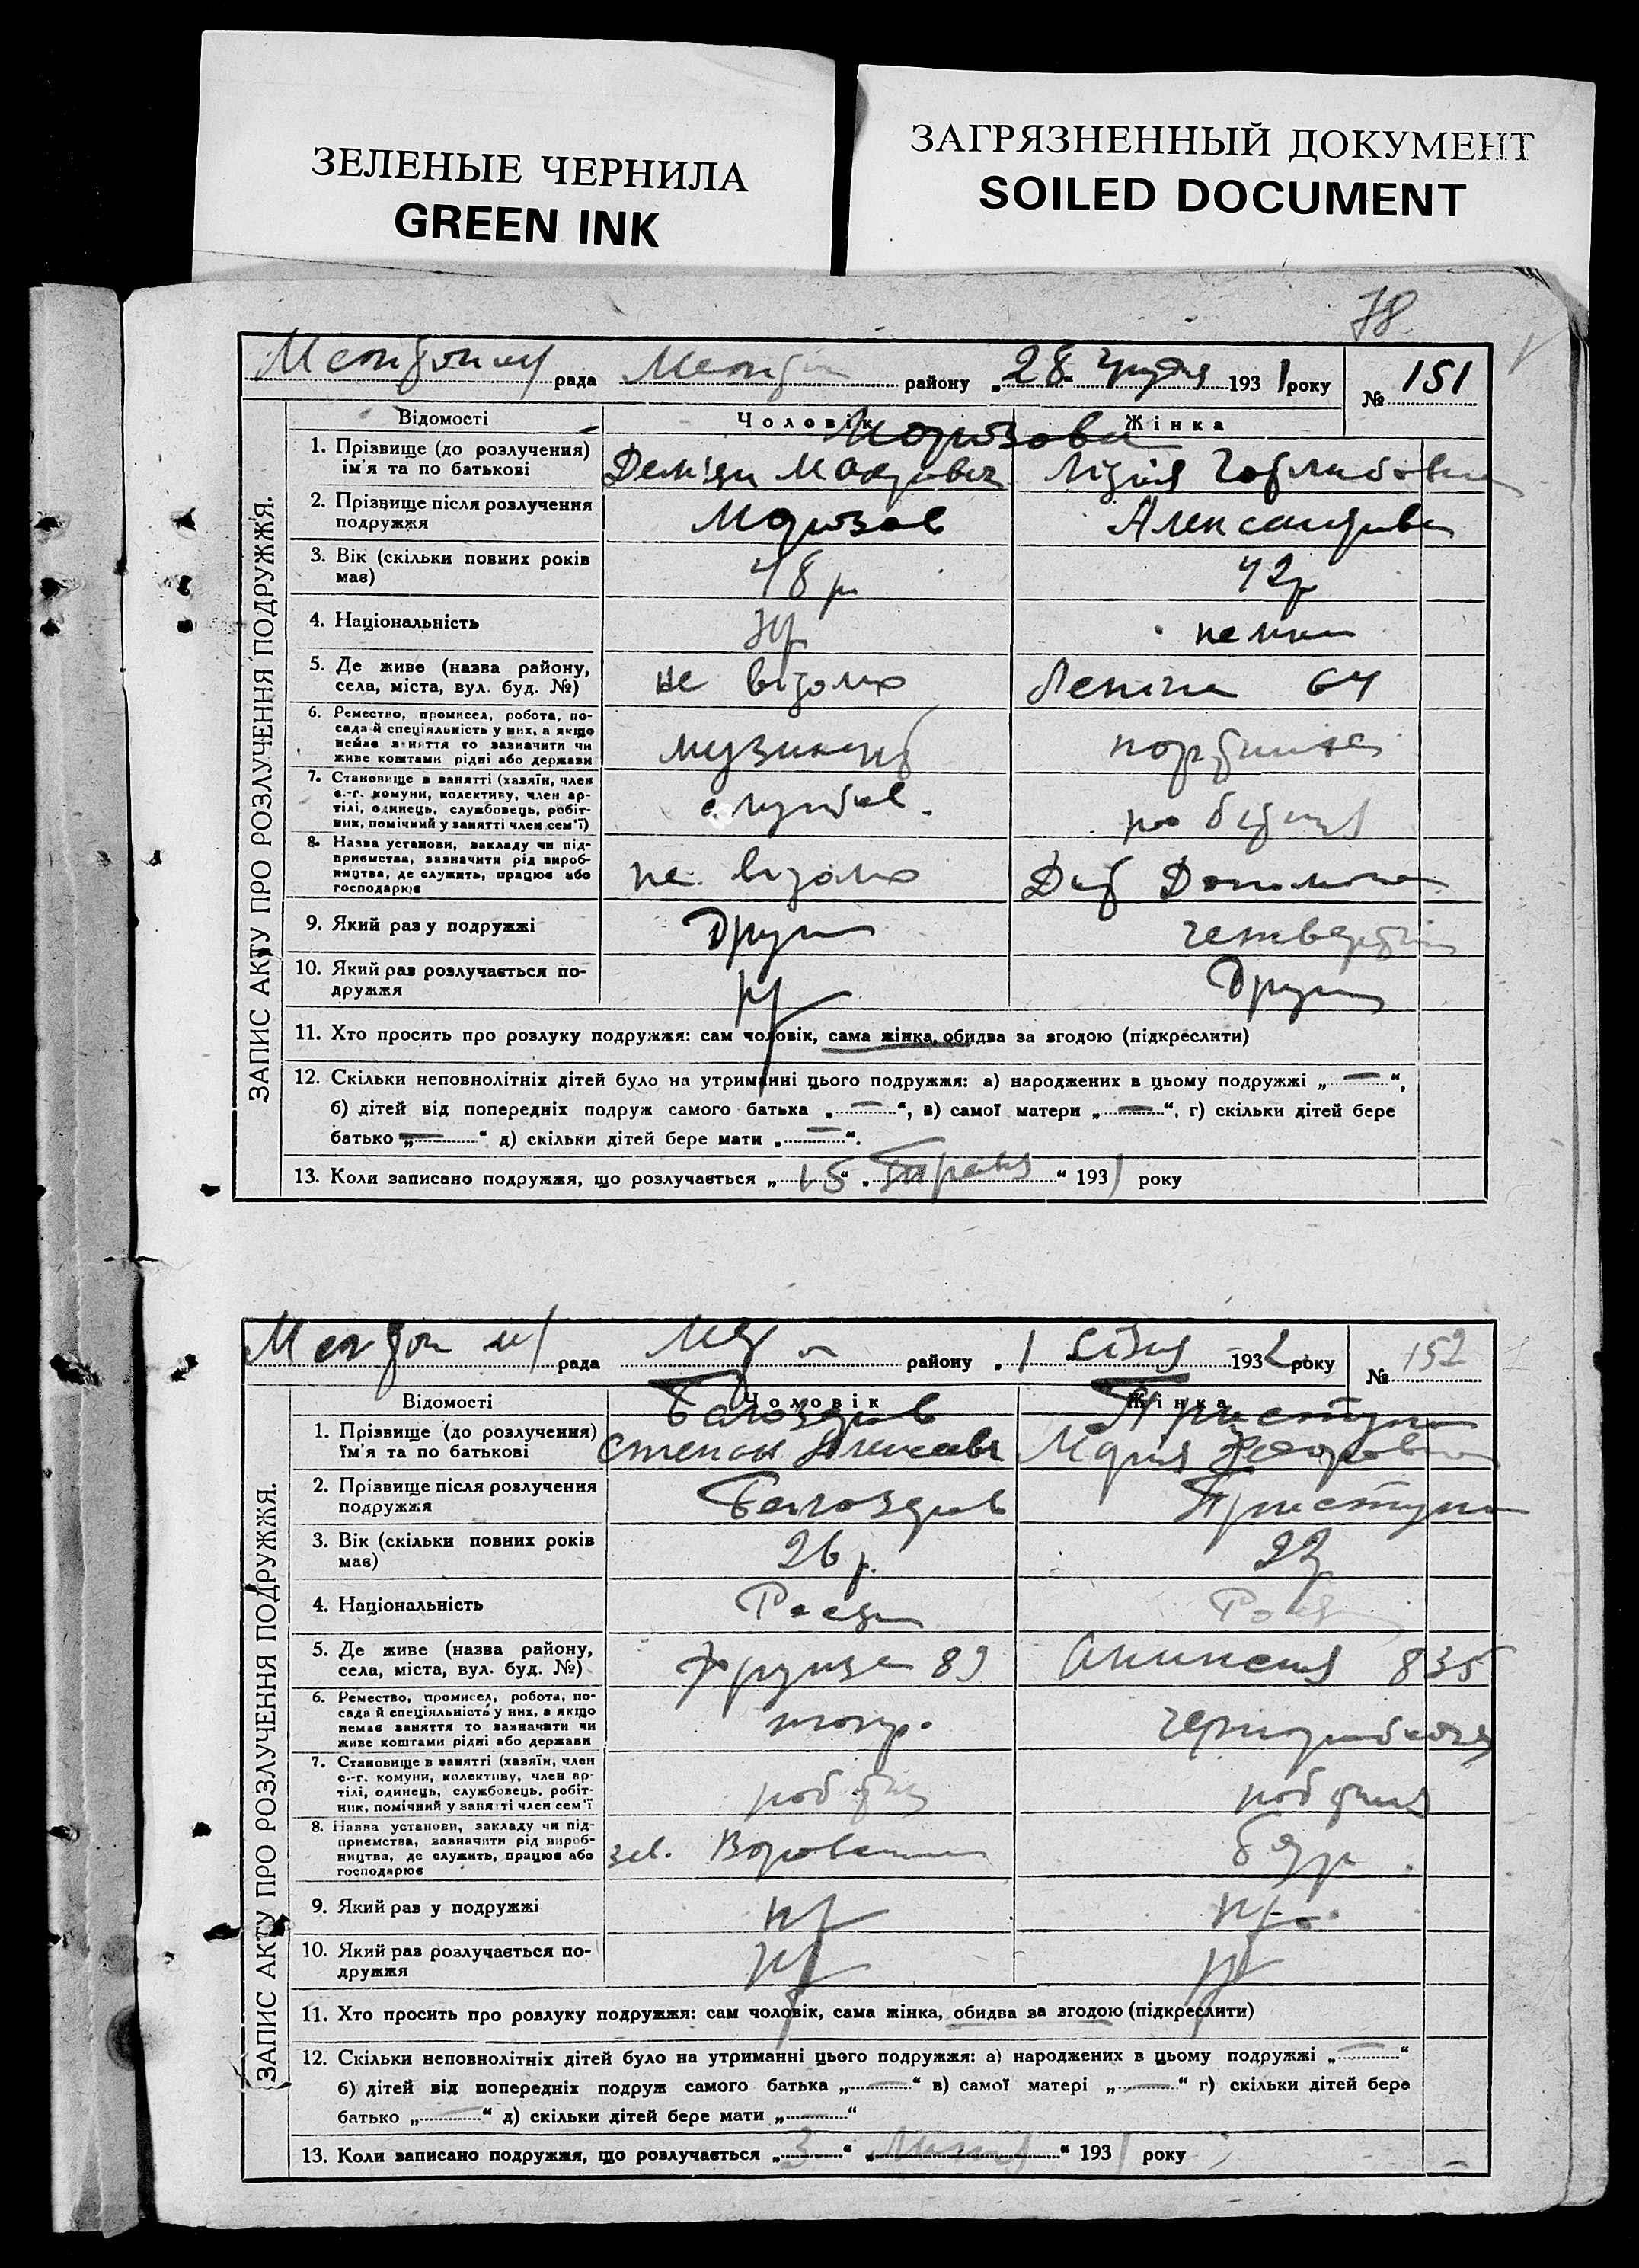 ЗЕЛЕНЫЕ ЧЕРНИЛА
GREEN INK
ЗАГРЯЗНЕННЫЙ ДОКУМЕНТ
SOILED DOCUMENT
78
рада району „28“ грудня 1931 року № 151
ЗАПИС АКТУ ПРО РОЗЛУЧЕННЯ ПОДРУЖЖЯ.
Відомості Чоловік Жінка
Морозови
1. Прізвище (до розлучення)
ім'я та по батькові Дем'ян Лідія
2. Прізвище після розлучення
подружжя Морозов Александрова
3. Вік (скільки повних років
має) 48 р 42 р
4. Національність немка
5. Де живе (назва району,
села, міста, вул. буд. №) не відомо Леніна 64
6. Ремество, промисел, робота, по-
сада й спеціяльність у них, а якщо
немає заняття то зазначити чи
живе коштами рідні або держави
музикант
7. Становище в занятті (хазяїн, член
с.-г. комуни, колективу, член ар-
тілі, одинець, службовець, робіт-
ник, помічний у занятті член сем'ї)
службов. робітниця
8. Назва установи, закладу чи під-
приємства, зазначити рід вироб-
ництва, де служить, працює або
господарює
не відомо
9. Який раз у подружжі другий четвертий
10. Який раз розлучається по-
дружжя другий
11. Хто просить про розлуку подружжя: сам чоловік, сама жінка, обидва за згодою (підкреслити)
12. Скільки неповнолітніх дітей було на утриманні цього подружжя: а) народжених в цьому подружжі „—“,
б) дітей від попередніх подруж самого батька „—“, в) самої матери „—“, г) скільки дітей бере
батько „—“ д) скільки дітей бере мати „—“.
13. Коли записано подружжя, що розлучається „15“ „Травня“ 1931 року
рада району „1 січня 1932 року № 152
ЗАПИС АКТУ ПРО РОЗЛУЧЕННЯ ПОДРУЖЖЯ.
Відомості Чоловік Жінка
Приступа
1. Прізвище (до розлучення)
Ім'я та по батькові Степан Марія
2. Прізвище після розлучення
подружжя Приступа
3. Вік (скільки повних років
має) 26 р. 22 р
4. Національність
5. Де живе (назва району,
села, міста, вул. буд. №) Фрунзе 89 835
6. Ремество, промисел, робота, по-
сада й спеціяльність у них, а якщо
немає заняття то зазначати чи
живе коштами рідні або держави
токар. чернорабочая
7. Становище в занятті (хазяїн, член
с.-г. комуни, колективу, член ар-
тілі, одинець, службовець, робіт-
ник, помічний у занятті член сем'ї
8. Назва установи, закладу чи під-
приємства, зазначити рід вироб-
ництва, де служить, працює або
господарює
зав.
9. Який раз у подружжі
10. Який раз розлучається по-
дружжя
11. Хто просить про розлуку подружжя: сам чоловік, сама жінка, обидва за згодою (підкреслити)
12. Скільки неповнолітніх дітей було на утриманні цього подружжя: а) народжених в цьому подружжі „—“
б) дітей від попередніх подруж самого батька „—“ в) самої матері „—“ г) скільки дітей бере
батько „—“ д) скільки дітей бере мати „—“
13. Коли записано подружжя, що розлучається „3“ 1931 року